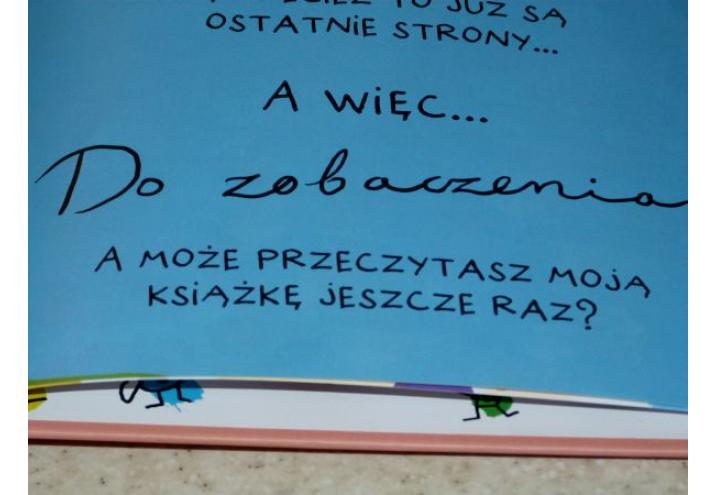 TO JUŻ SĄ
OSTATNIE STRONY...
A WIĘC...
Do zobaczenia
A MOŻE PRZECZYTASZ MOJĄ
KSIĄŻKĘ JESZCZE RAZ?